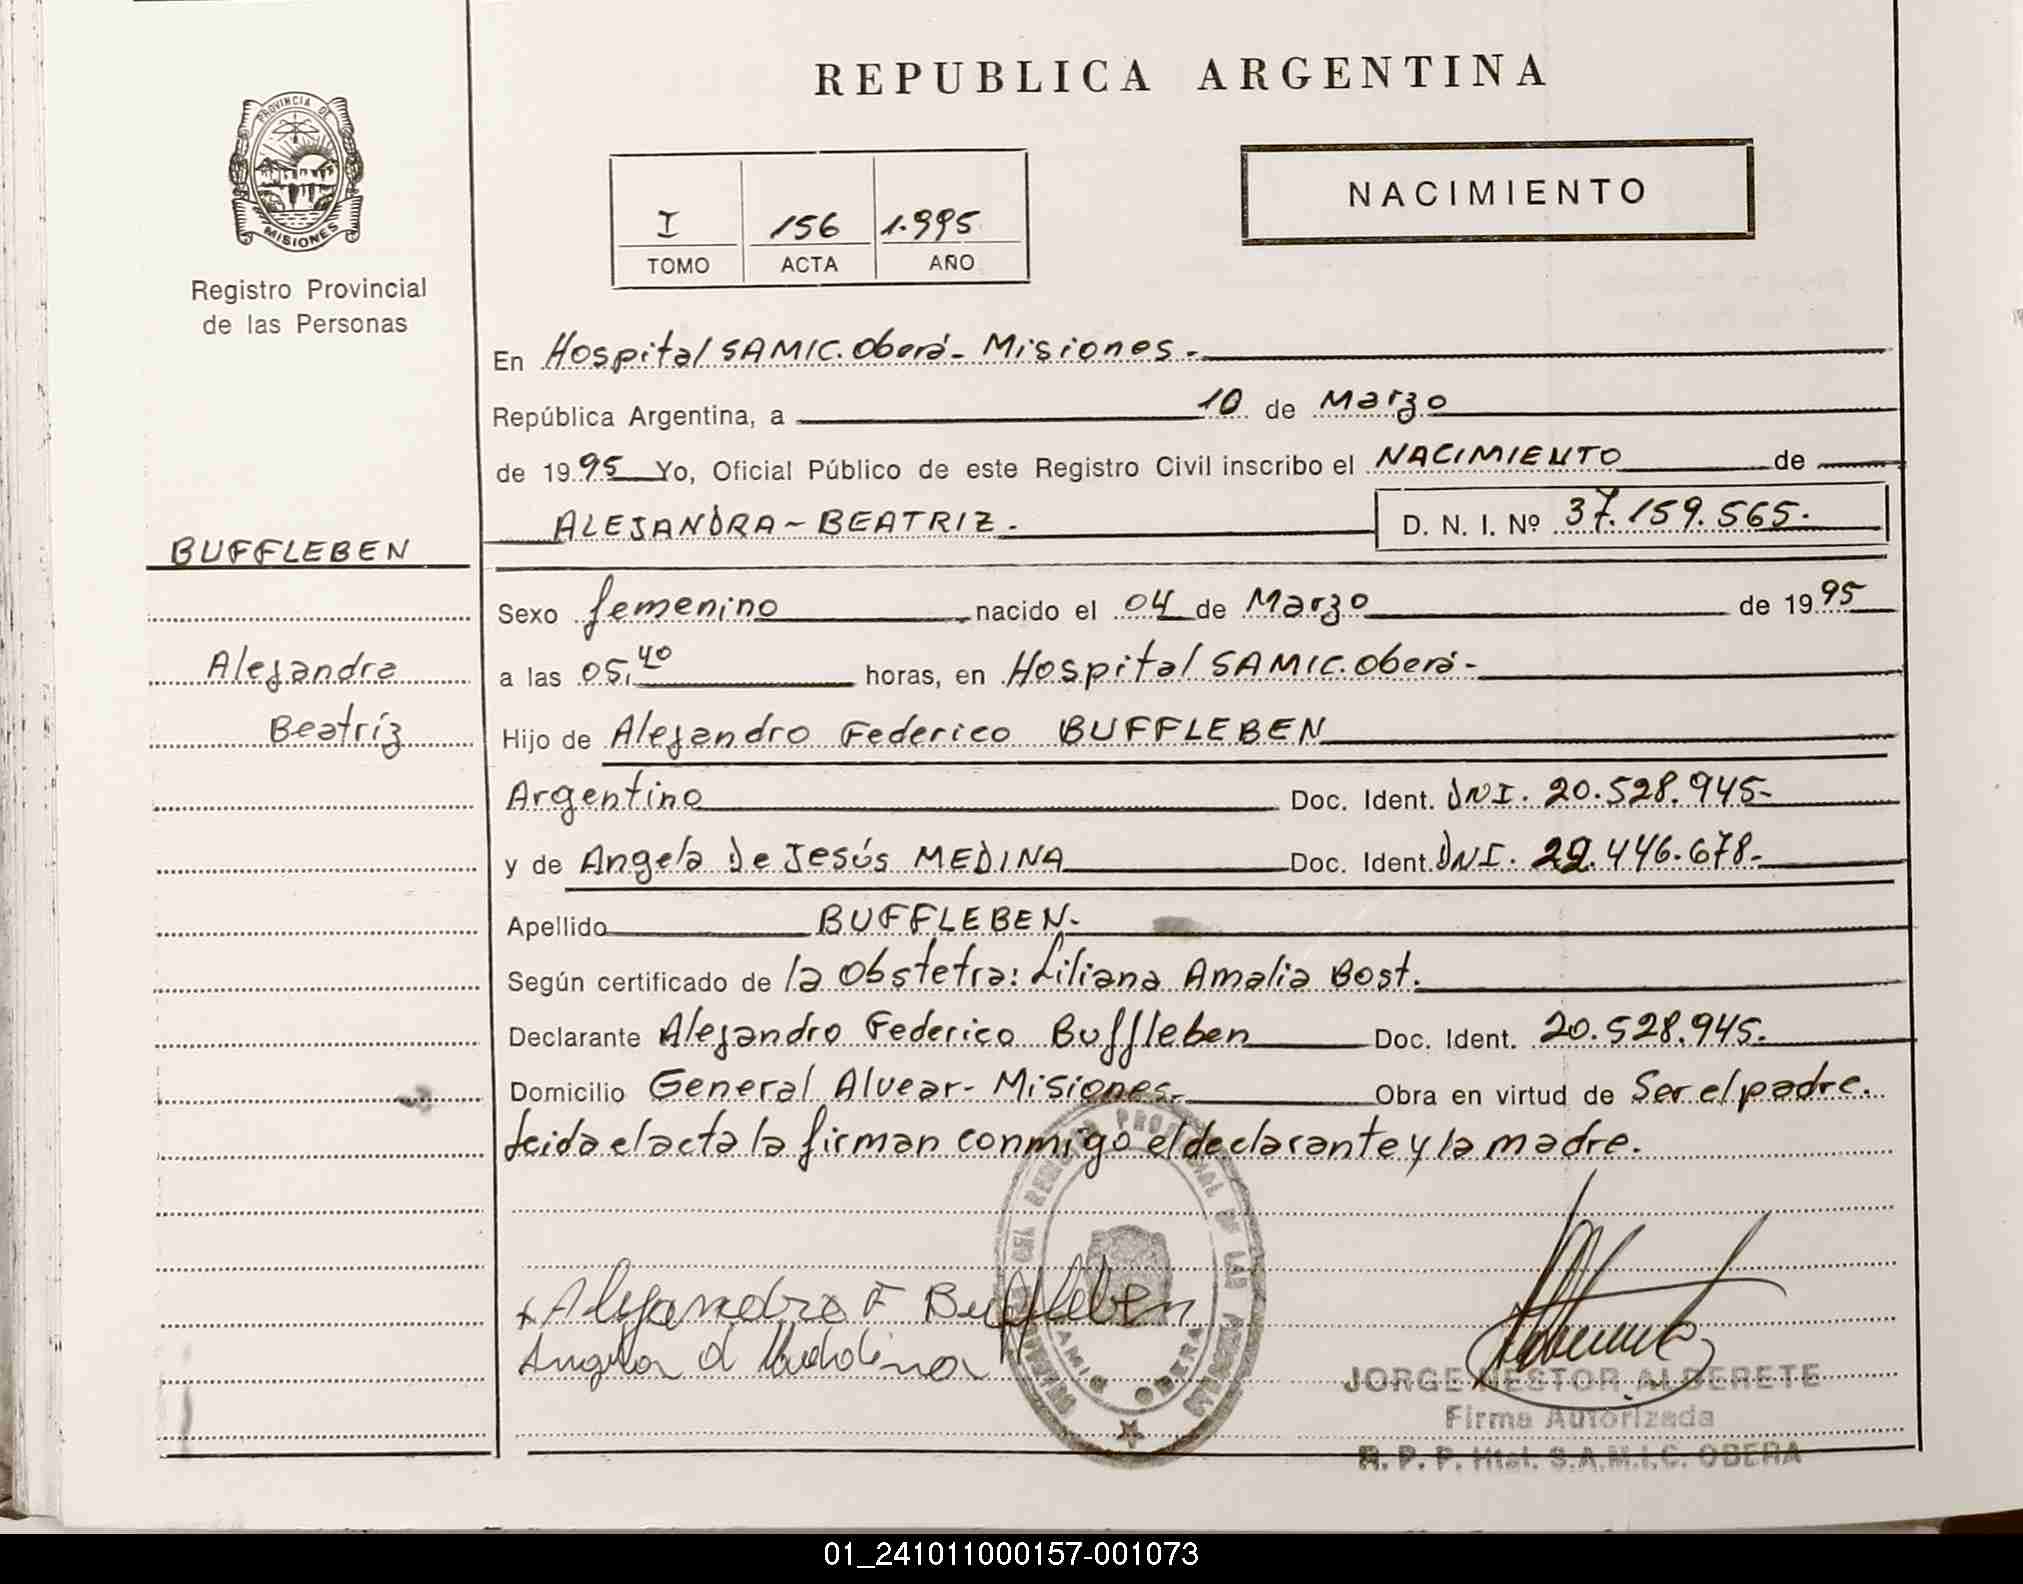 REPUBLICA ARGENTINA
PROVINCIA DE
MISIONES
Registro Provincial
de las Personas
I 156 1.995
TOMO ACTA AÑO
NACIMIENTO
En Hospital SAMIC. Oberá - Misiones.-
República Argentina, a 10 de Marzo
de 1995 Yo, Oficial Público de este Registro Civil inscribo el NACIMIENTO de
ALEJANDRA - BEATRIZ. D. N. I. Nº 37.159.565.
BUFFLEBEN
Alejandra
Beatríz
Sexo femenino nacido el 04 de Marzo de 1995
a las 05,40 horas, en Hospital SAMIC. Oberá -
Hijo de Alejandro Federico BUFFLEBEN
Argentino Doc. Ident. DNI. 20.528.945-
y de Angela De Jesús MEDINA Doc. Ident. DNI. 22.446.678.-
Apellido BUFFLEBEN.-
Según certificado de la Obstetra: Liliana Amalia Bost.
Declarante Alejandro Federico Buffleben Doc. Ident. 20.528.945.
Domicilio General Alvear - Misiones.- Obra en virtud de Ser el padre.
Leida el acta la firman conmigo el declarante y la madre.
Alejandro F Buffleben
Angela d Medina
REGISTRO PROVINCIAL DE LAS PERSONAS
OBERA
JORGE NESTOR ALDERETE
Firma Autorizada
R. P. P. Htal. S.A.M.I.C. OBERA
01_241011000157-001073